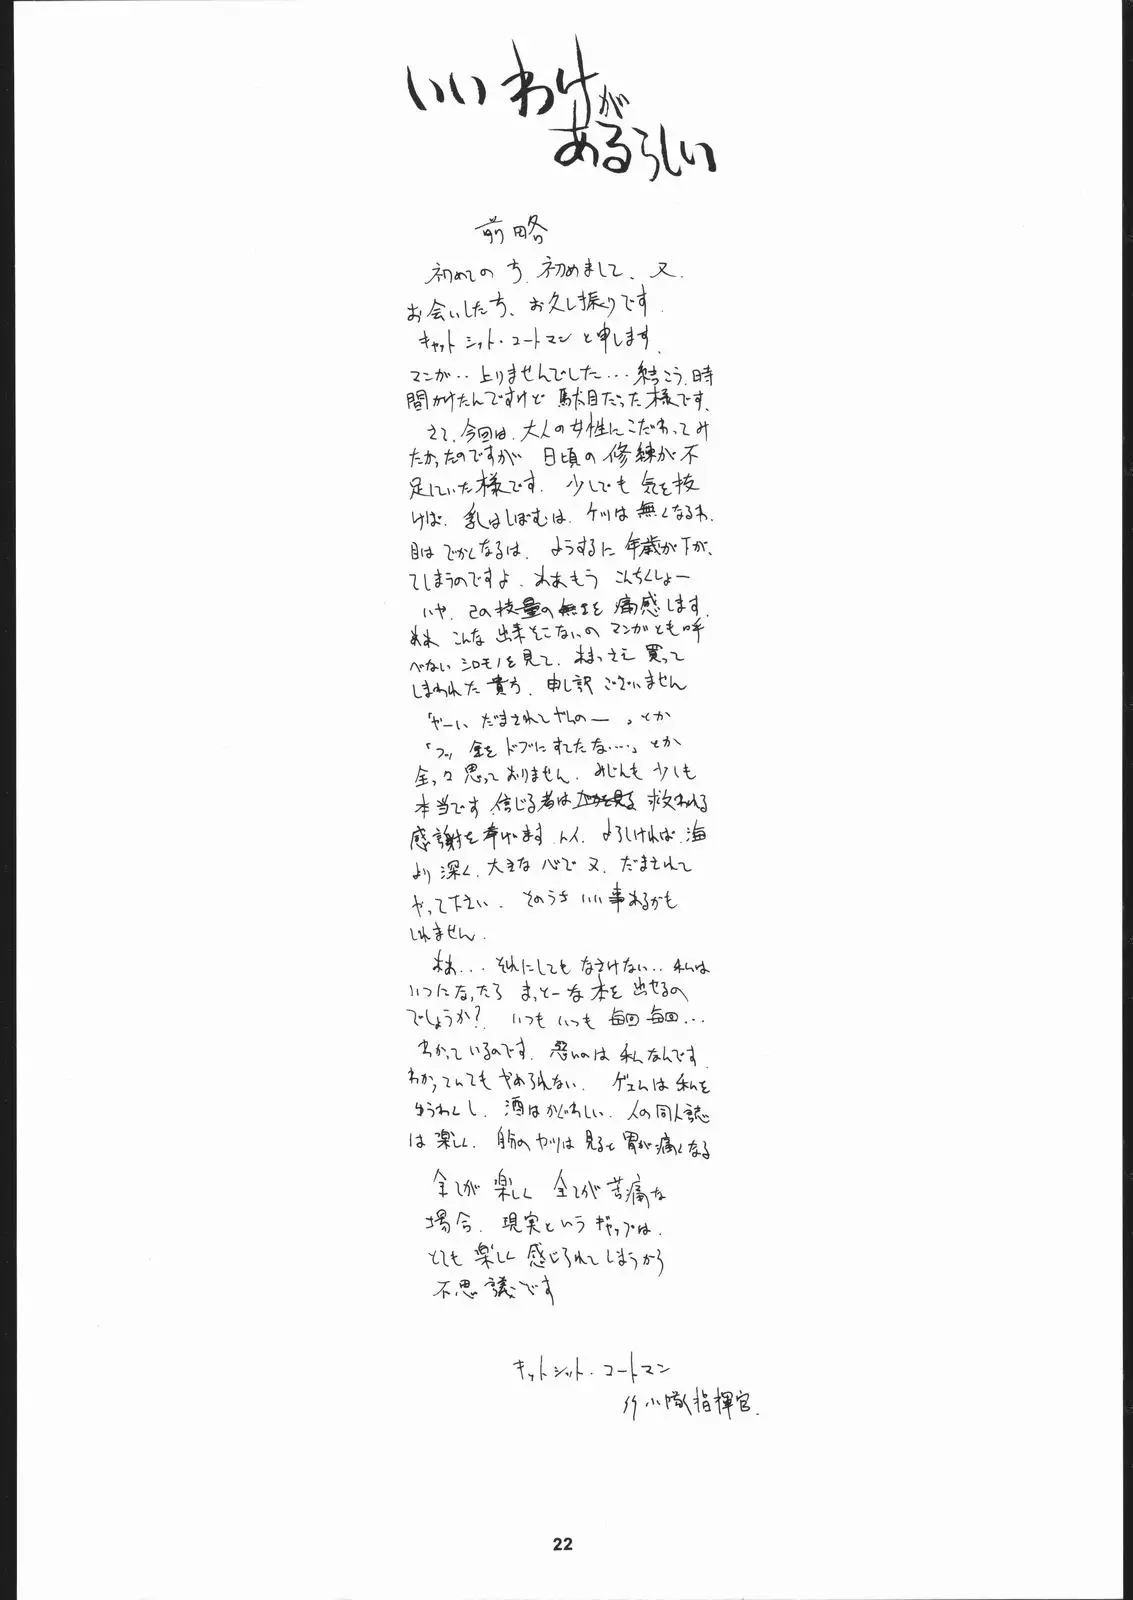 いいわけが
あるらしい
前略
初めての方、初めまして、又、
お会いした方、お久し振りです。
キャットシット・コートマンと申します。
マンガ‥上りませんでした…結こう時
間かけたんですけど駄目だった様です。
さて、今回は、大人の女性にこだわってみ
たかったのですが 日頃の修練が不
足していた様です。少しでも気を抜
けば、乳はしぼむは、ケツは無くなるわ、
目はでかくなるは、ようするに年歳が下が、
てしまうのですよ、わあもう こんちくしょー
いや、この技量の無さを痛感します。
ああ こんな出来そこないのマンガとも呼
べないシロモノを見て、あまつさえ買って
しまわれた貴方、申し訳ございません
「やーい だまされてやんのー」とか
「フッ 金をドブにすてたな‥‥」とか
全っ々思っておりません。みじんも少しも
本当です。信じる者は 救われる
感謝を奉げます。よろしければ、海
より深く、大きな心で又、だまされて
やって下さい、そのうちいい事あるかも
しれません。
ああ...それにしてもなさけない‥私は
いつになったら まっとーな本を出せるの
でしょうか? いつもいつも毎回毎回...
わかっているのです。悪いのは私なんです。
わかっていてもやめられない。ゲェムは私を
ゆうわくし、酒はかぐわしい、人の同人誌
は楽しく、自分のヤツは見ると胃が痛くなる
全てが楽しく 全てが苦痛な
場合、現実というギャップは、
とても楽しく感じられてしまうから
不思議です
キャットシット・コートマン
小隊指揮官.
22